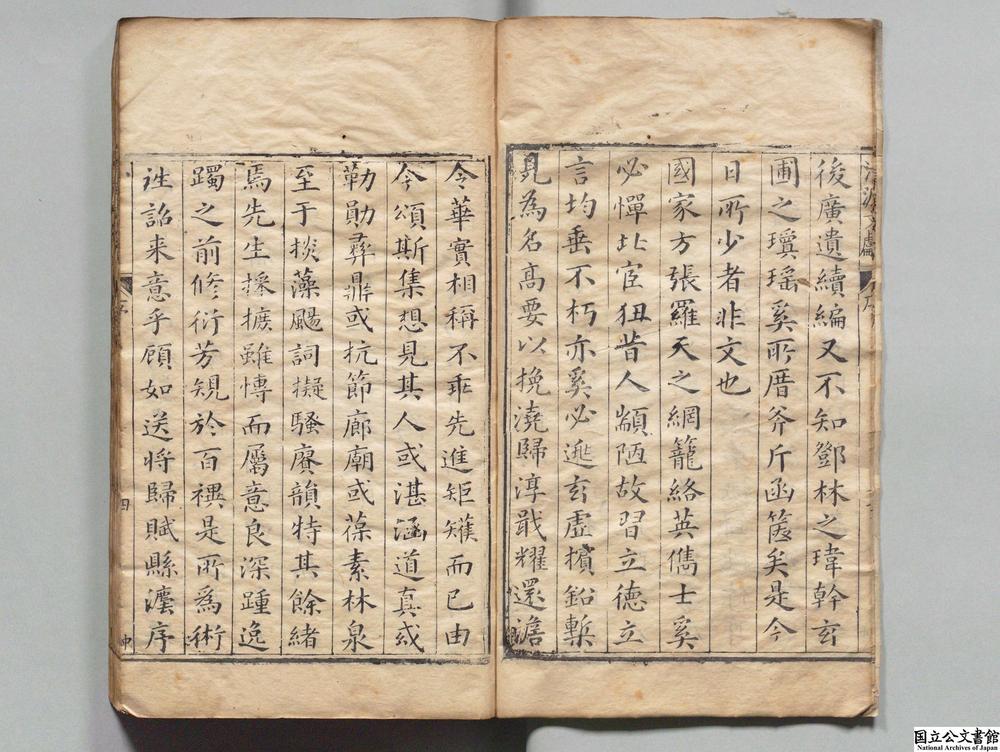 清源文獻
序
後廣遺續編又不知鄧林之瑋幹玄
圃之瓊瑤奚所厝斧斤函篋矣是今
日所少者非文也
國家方張羅天之網籠絡英儁士奚
必憚北宦狃昔人顓陋故習立德立
言均垂不朽亦奚必逃玄虛擯鉛槧
見為名高要以挽澆歸淳戢耀還澹
令華實相稱不乖先進矩矱而已由
今頌斯集想見其人或湛涵道真或
勒勛彝鼎或抗節廊廟或葆素林泉
至于掞藻颺詞擬騷賡韻特其餘緒
焉先生摉擴雖愽而屬意良深踵逸
躅之前修衍芳規於百禩是所為術
詮詔来意乎顧如送将歸賦縣瀍序
序
四
中
国立公文書館
National Archives of Japan